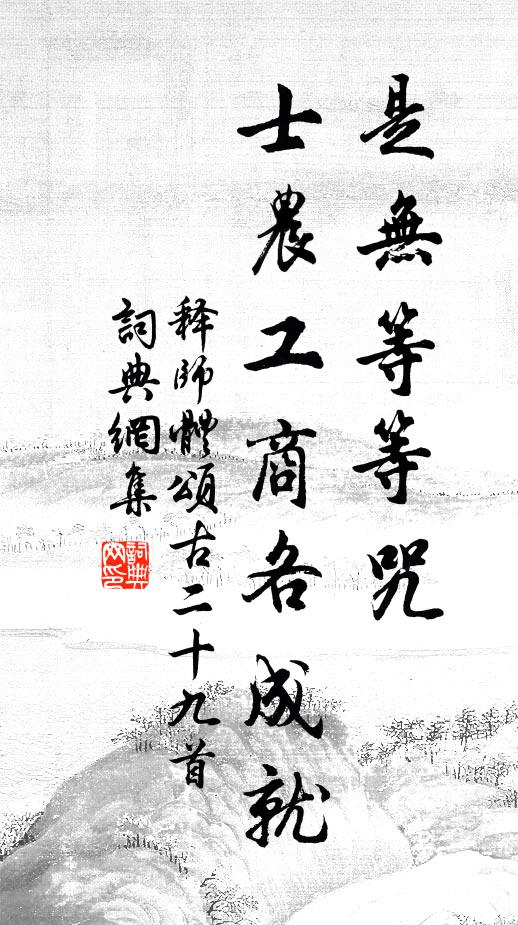 是無等等咒
士農工商各成就
释師體頌古二十九首
詞典網集
詞典网印